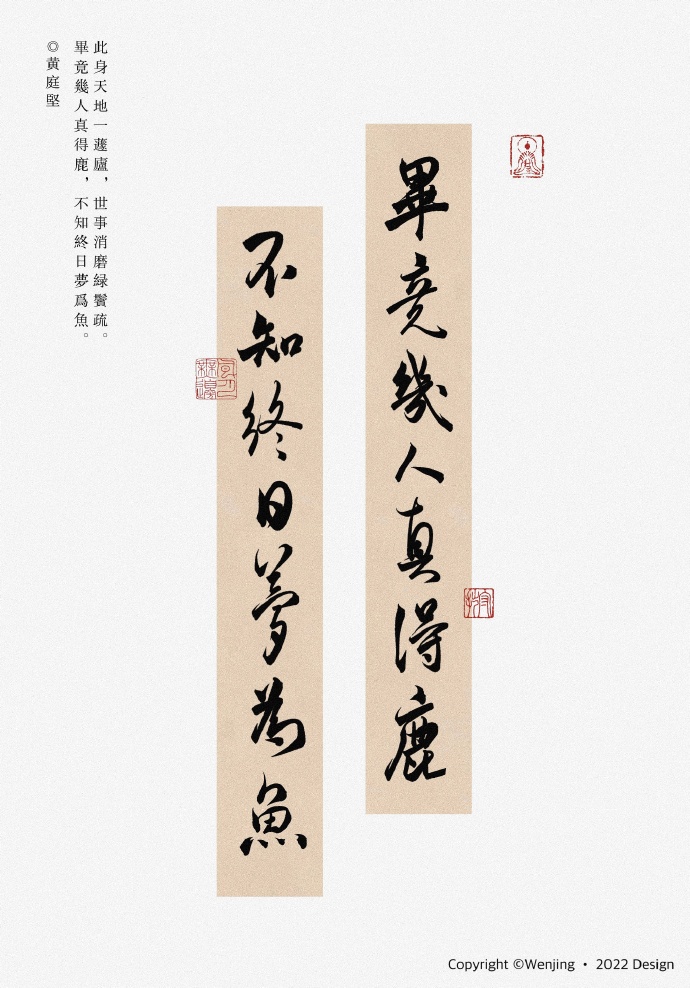 此身天地一蘧廬，世事消磨緑鬢疏。
畢竟幾人真得鹿，不知終日夢爲魚。
◎黄庭堅
畢竟幾人真得鹿
不知終日夢為魚
Copyright ©Wenjing • 2022 Design